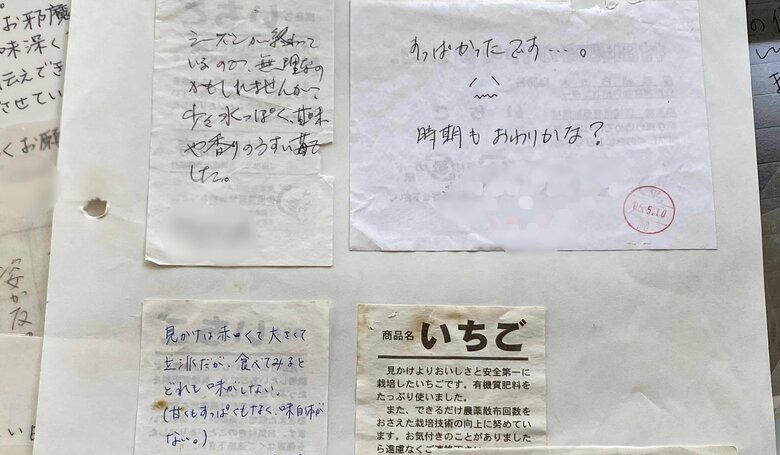 お邪魔
味深く
伝えでき
させてい
くお願
シーズンが終わって
いるので、無理なの
かもしれませんが、
少々水っぽく、甘味
や香りのうすい苺で
した。
すっぱかったです…。
時期もおわりかな？
05.5.10
見かけは赤くて大きくて
立派だが、食べてみると
どれも味がしない。
(甘くもすっぱくもなく、味自体が
ない。)
商品名 いちご
見かけよりおいしさと安全第一に
栽培したいちごです。有機質肥料を
たっぷり使いました。
また、できるだけ農薬散布回数を
おさえた栽培技術の向上に努めてい
ます。お気付きのことがありました
ら遠慮なくご連絡下さい